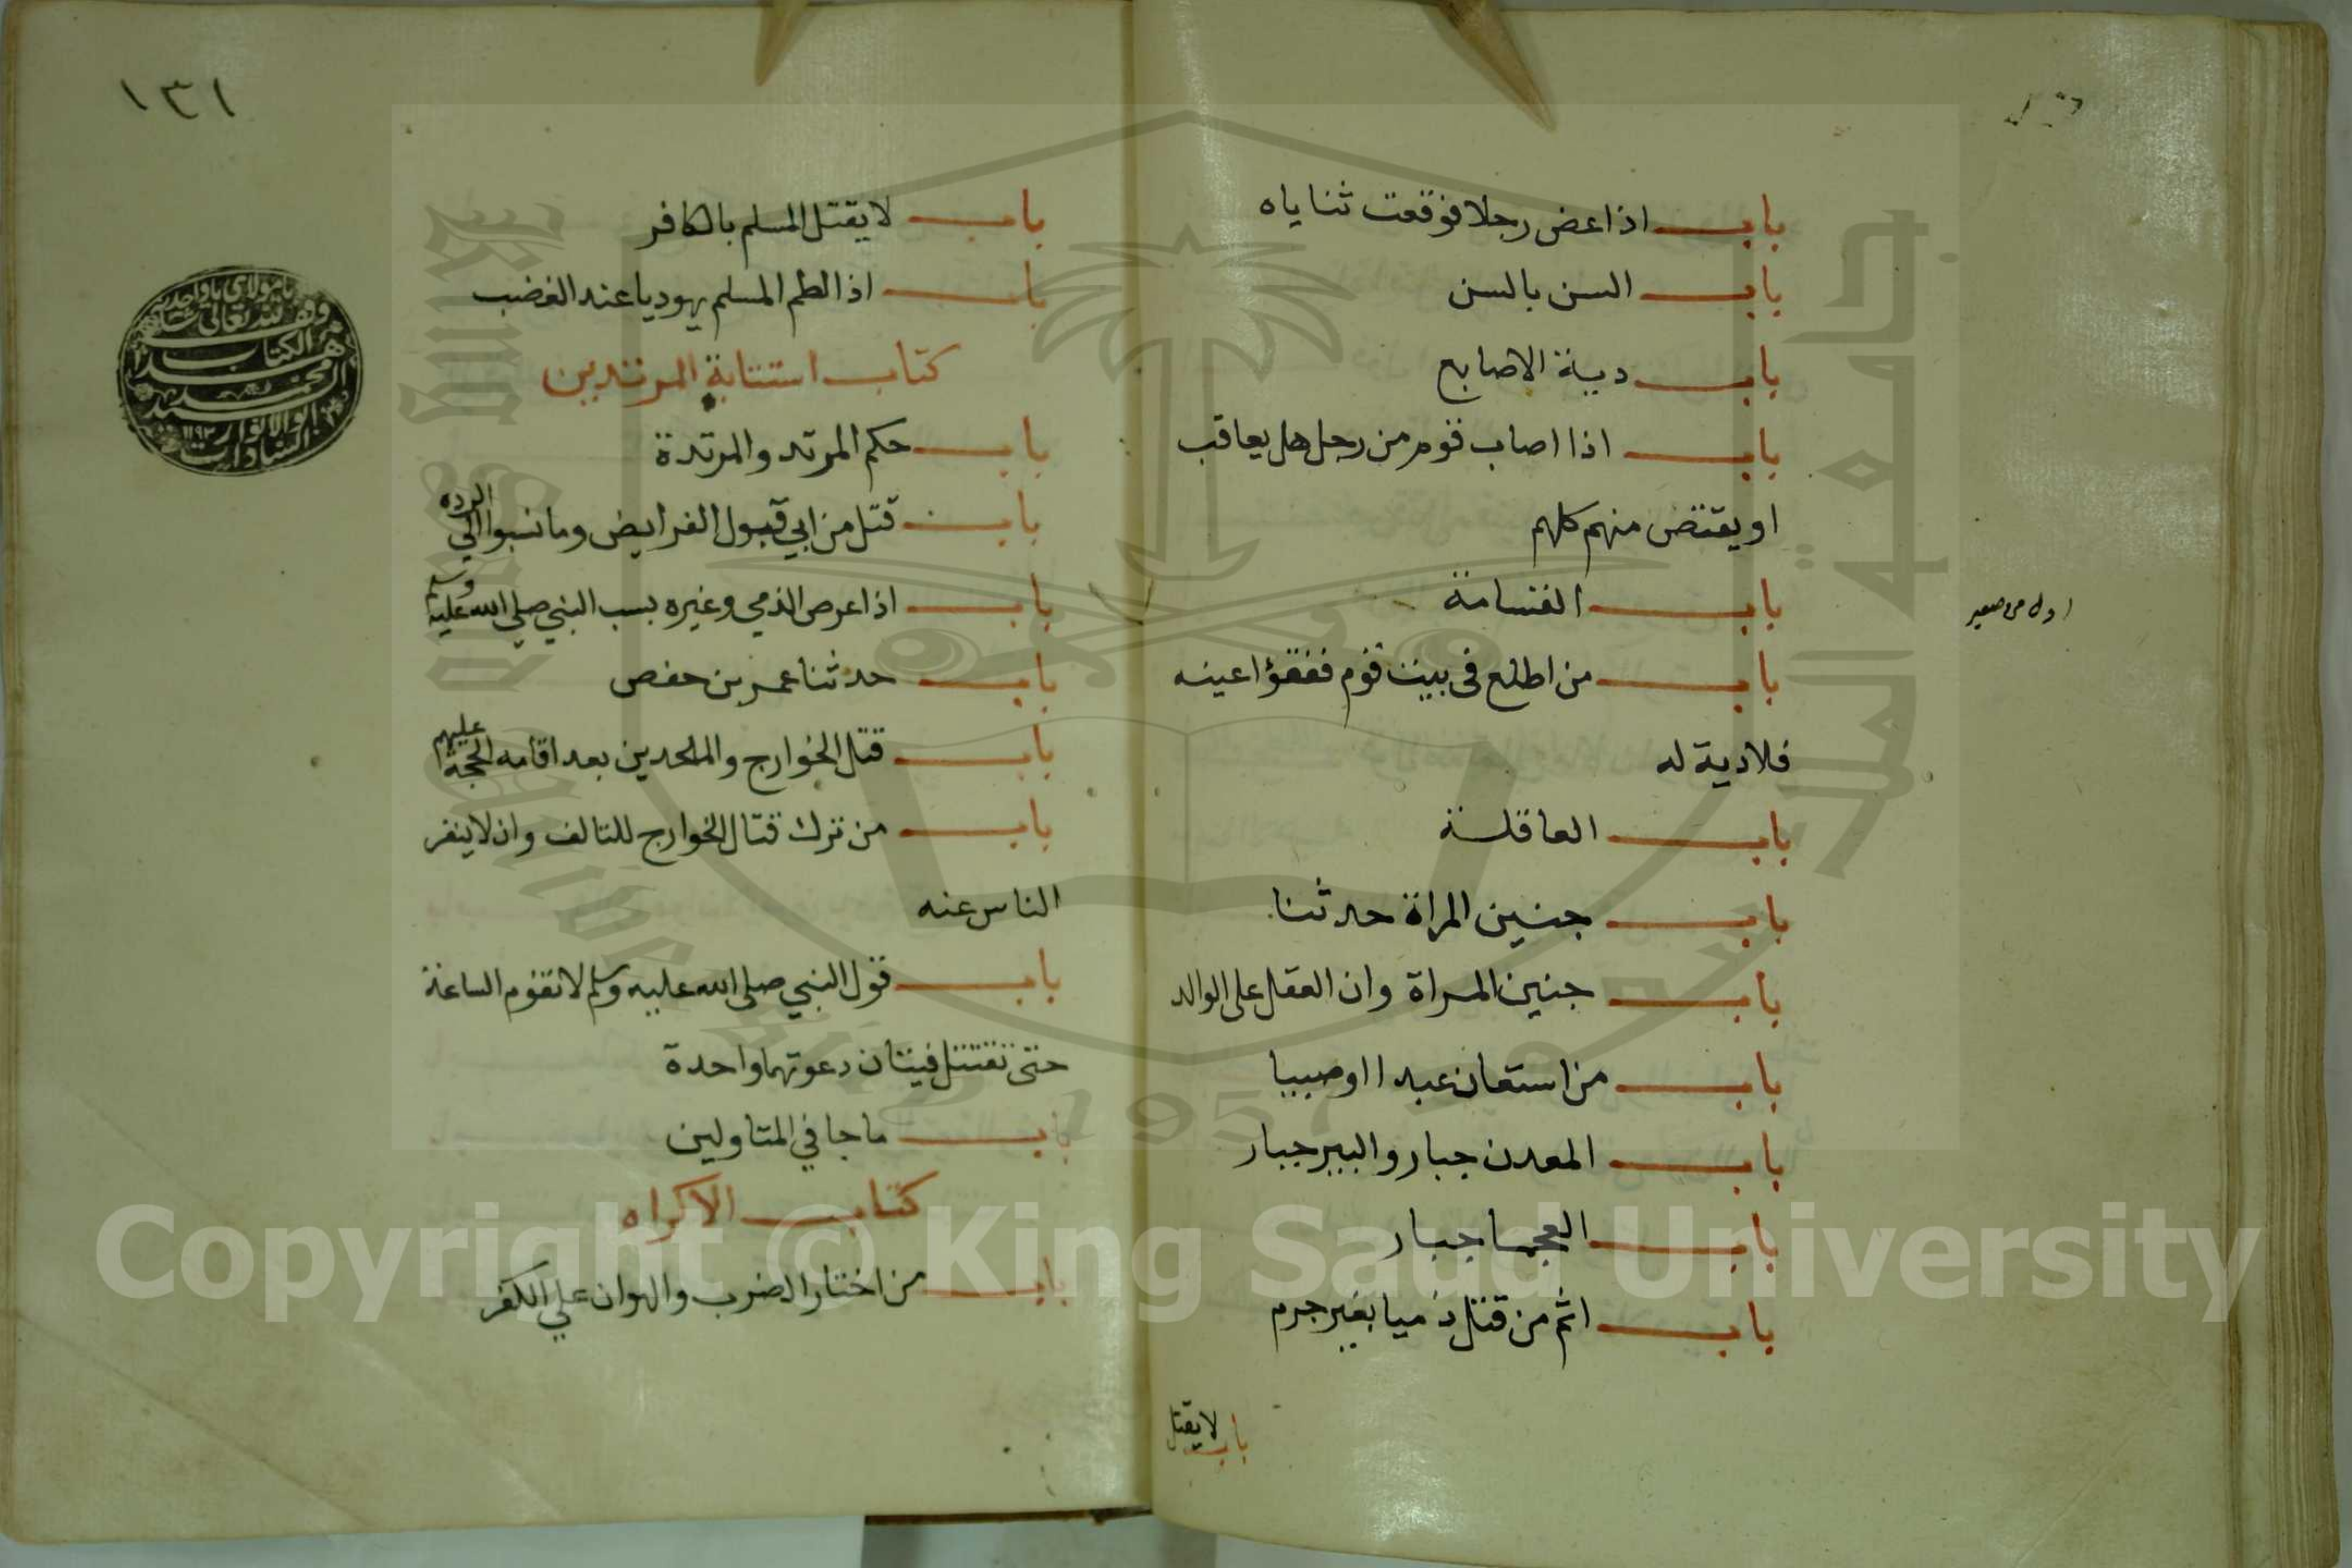 باب اذا عض رجلا فوقعت ثناياه
باب السن بالسن
باب دية الاصابع
باب اذا اصاب قوم من رجل هل يعاقب
او يقتض منهم كلهم
باب القسامة
باب من اطلع فى بيت قوم ففقؤا عينه
فلا دية له
باب العاقلة
باب جنين المراة حدثنا
باب جنين المراة وان العقل على الوالد
باب من استعان عبدا او صبيا
باب المعدن جبار والبير جبار
باب العجما جبار
باب اثم من قتل ذميا بغير جرم
باب لا يقتل
١٣١
باب لا يقتل المسلم بالكافر
باب اذا لطم المسلم يهوديا عند الغضب
كتاب استتابة المرتدين
باب حكم المرتد والمرتدة
باب قتل من ابي قبول الفرايض وما نسبوا الي الرده
باب اذا عرض الذمي وغيره بسب النبي صلي الله عليه وسلم
باب حدثنا عمر بن حفص
باب قتل الخوارج والملحدين بعد اقامه الحجة عليهم
باب من ترك قتال الخوارج للتالف وان لا ينفر
الناس عنه
باب قول النبي صلى الله عليه وسلم لا تقوم الساعة
حتى تقتتل فيتان دعوتهما واحدة
باب ما جا في المتاولين
كتاب الاكراه
باب من اختار الضرب والهوان علي الكفر
وقف لله تعالى
هذا الكتاب
محمد
السيد
ابو الانوار
السادات
Copyright © King Saud University
1957